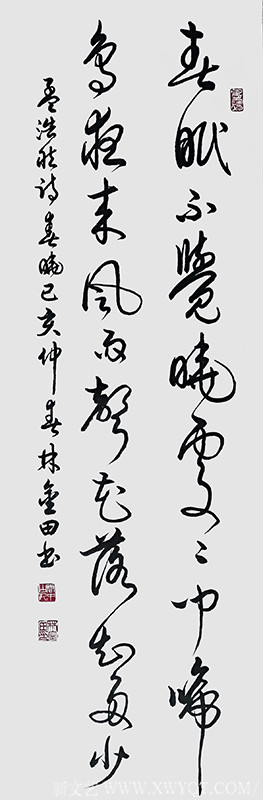 春眠不覺曉處々聞啼
鳥夜來風雨聲花落知多少
孟浩然詩春曉己亥仲春林金田書